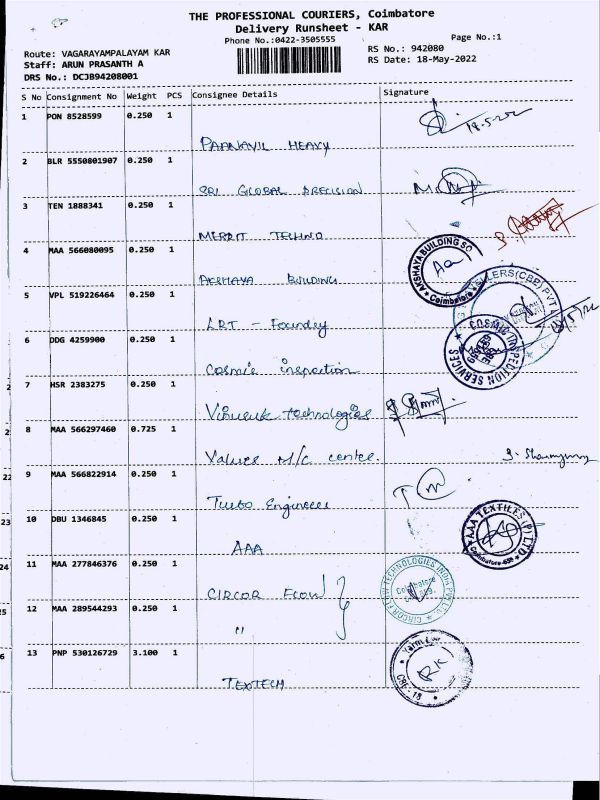 THE PROFESSIONAL COURIERS, Coimbatore
Delivery Runsheet - KAR
Phone No.:0422-3505555
Page No.:1
Route: VAGARAYAMPALAYAM KAR
RS No.: 942080
Staff: ARUN PRASANTH A
RS Date: 18-May-2022
DRS No.: DCJB94208001
S No Consignment No Weight PCS Consignee Details Signature
1 PON 8528599 0.250 1
18-5-22
PAANAVIL HEAVY
2 BLR 5550801907 0.250 1
SRI GLOBAL PRECISION
3 TEN 1888341 0.250 1
MERRIT TECHNO
4 MAA 566080095 0.250 1
AKSHAYA BUILDING SO
Coimbatore
AKSHAYA BUILDING
5 VPL 519226464 0.250 1
LLERS(CBE) PVT
LRT - Foundry
6 DDG 4259900 0.250 1
COSMIC INSPECTION SERVICES
Cosmic inspection
7 HSR 2383275 0.250 1
technologies
8 MAA 566297460 0.725 1
Values M/C center.
9 MAA 566822914 0.250 1
Turbo Engineers
10 DBU 1346845 0.250 1
AAA TEXTILES (P) LTD
Coimbatore
AAA
11 MAA 277846376 0.250 1
CIRCOR FLOW TECHNOLOGIES INDIA PVT LTD
Coimbatore
CIRCOR FLOW
12 MAA 289544293 0.250 1
"
13 PNP 530126729 3.100 1
RK
CBE - 18
TEXTECH